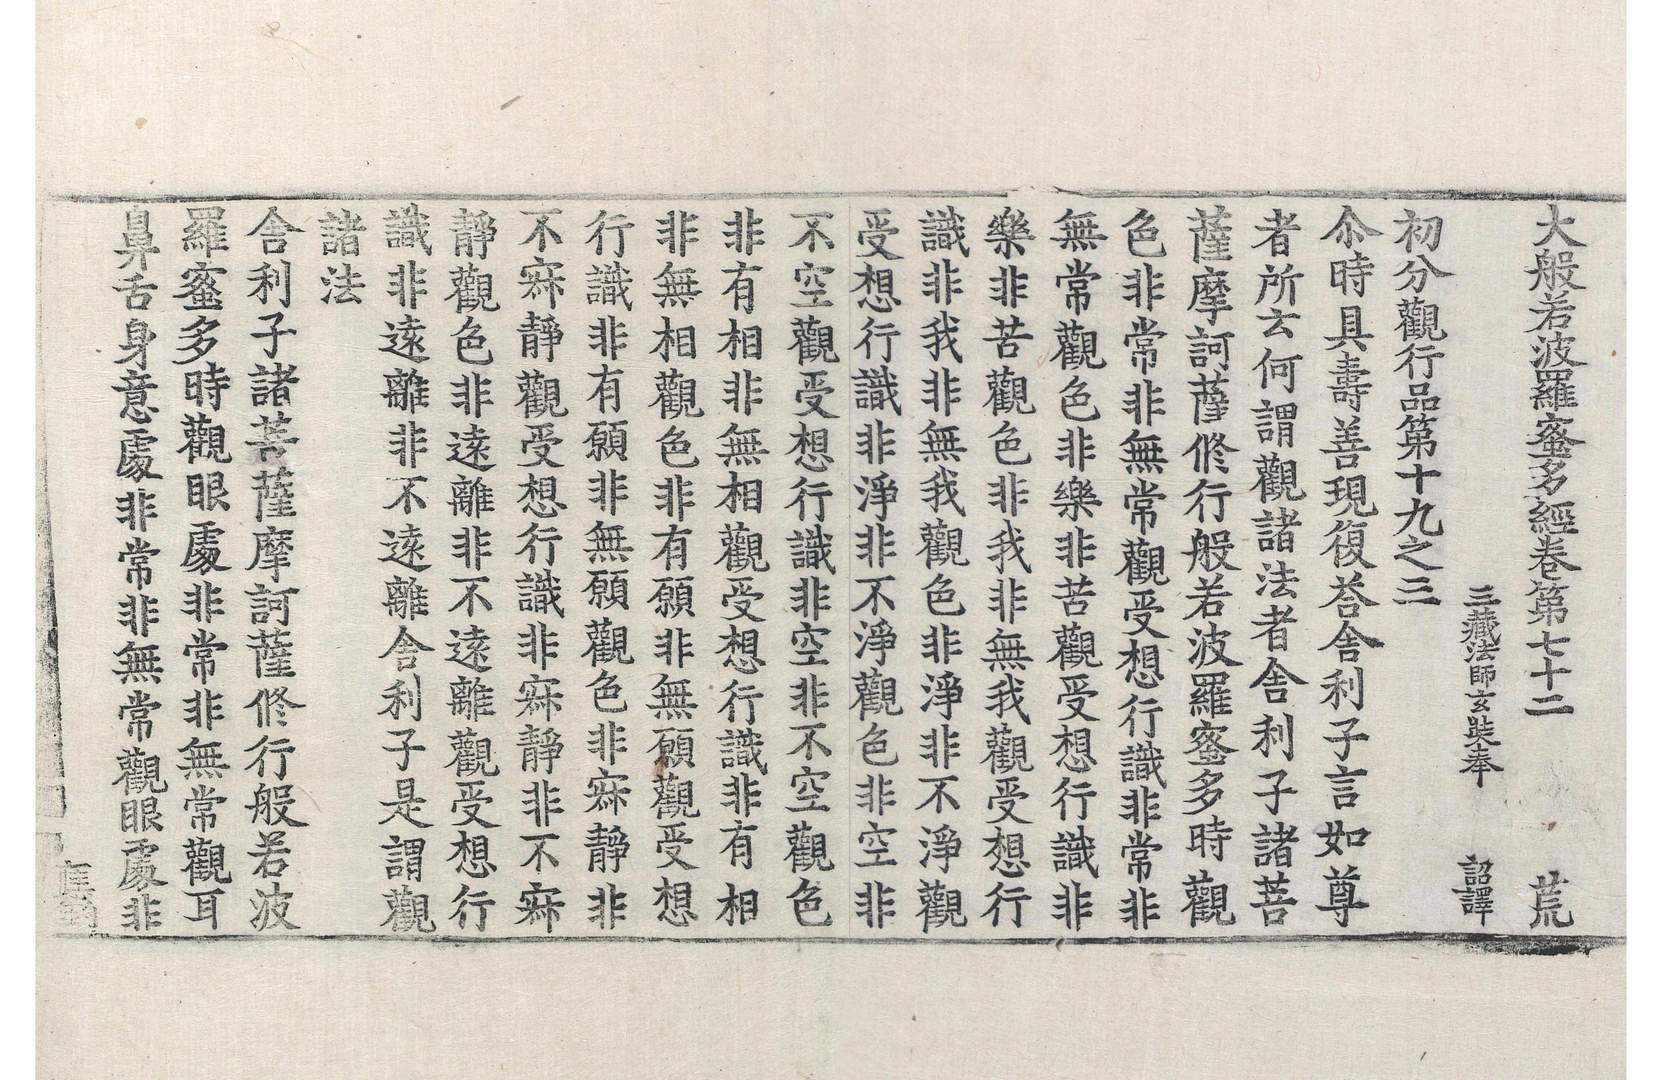 大般若波羅蜜多經卷第七十二 荒
三藏法師玄奘奉 詔譯
初分觀行品第十九之三
尒時具壽善現復荅舍利子言如尊
者所云何謂觀諸法者舍利子諸菩
薩摩訶薩修行般若波羅蜜多時觀
色非常非無常觀受想行識非常非
無常觀色非樂非苦觀受想行識非
樂非苦觀色非我非無我觀受想行
識非我非無我觀色非淨非不淨觀
受想行識非淨非不淨觀色非空非
不空觀受想行識非空非不空觀色
非有相非無相觀受想行識非有相
非無相觀色非有願非無願觀受想
行識非有願非無願觀色非寂靜非
不寂靜觀受想行識非寂靜非不寂
靜觀色非遠離非不遠離觀受想行
識非遠離非不遠離舍利子是謂觀
諸法
舍利子諸菩薩摩訶薩修行般若波
羅蜜多時觀眼處非常非無常觀耳
鼻舌身意處非常非無常觀眼處非